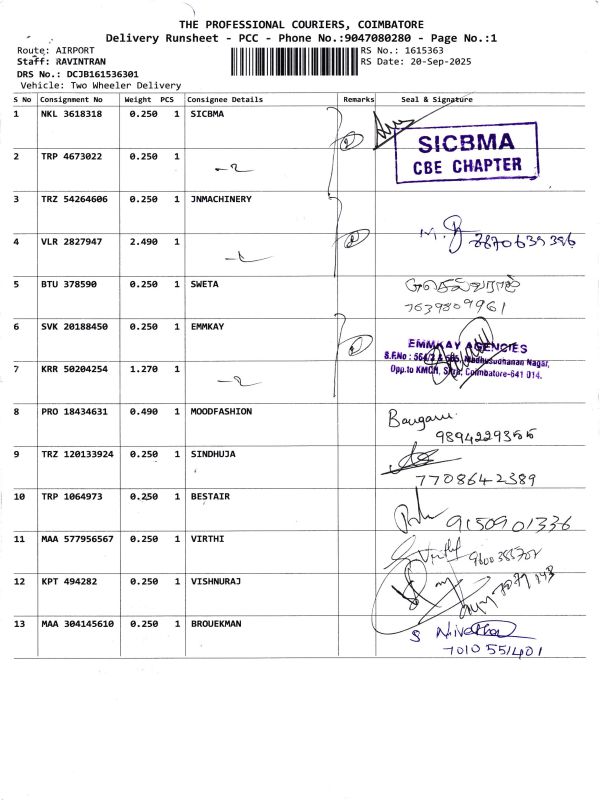 THE PROFESSIONAL COURIERS, COIMBATORE
Delivery Runsheet - PCC - Phone No.:9047080280 - Page No.:1
Route: AIRPORT
RS No.: 1615363
Staff: RAVINTRAN
RS Date: 20-Sep-2025
DRS No.: DCJB161536301
Vehicle: Two Wheeler Delivery
S No Consignment No Weight PCS Consignee Details Remarks Seal & Signature
1 NKL 3618318 0.250 1 SICBMA
SICBMA
CBE CHAPTER
2 TRP 4673022 0.250 1
3 TRZ 54264606 0.250 1 JNMACHINERY
4 VLR 2827947 2.490 1
5 BTU 378590 0.250 1 SWETA
7639809961
6 SVK 20188450 0.250 1 EMMKAY
EMMKAY AGENCIES
7 KRR 50204254 1.270 1
Opp.to KMCH, Coimbatore-641 014.
8 PRO 18434631 0.490 1 MOODFASHION
9 TRZ 120133924 0.250 1 SINDHUJA
7708642389
10 TRP 1064973 0.250 1 BESTAIR
9150901336
11 MAA 577956567 0.250 1 VIRTHI
12 KPT 494282 0.250 1 VISHNURAJ
13 MAA 304145610 0.250 1 BROUEKMAN
7010551401